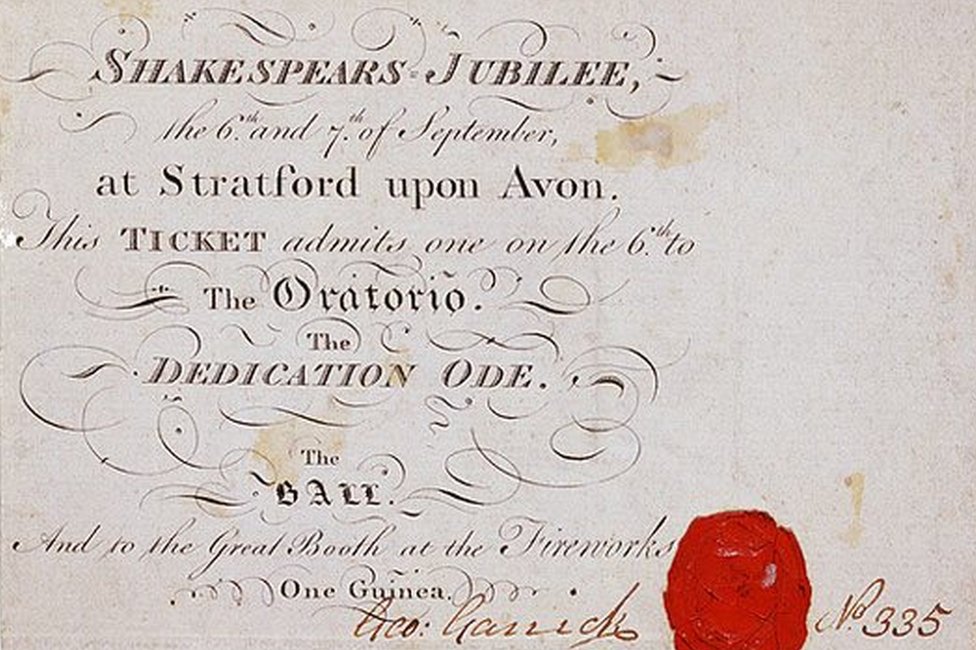 SHAKESPEARS=JUBILEE,
the 6.th and 7.th of September,
at Stratford upon Avon.
This TICKET admits one on the 6.th to
The Oratorio.
The
DEDICATION ODE.
The
BALL.
And to the Great Booth at the Fireworks
One Guinea.
Geo: Garrick No. 335